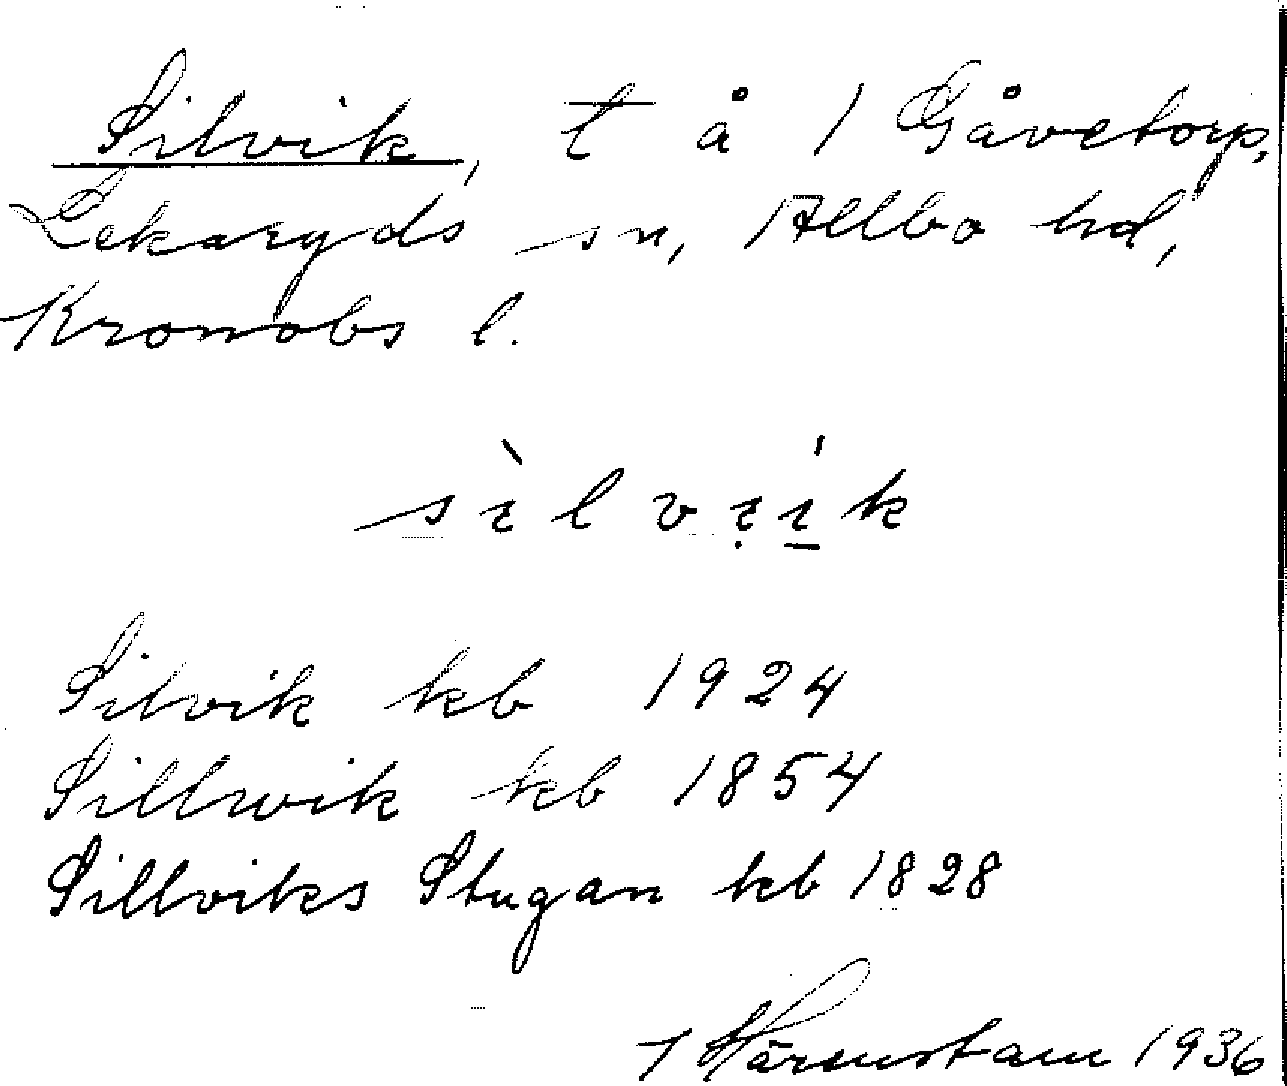 Silvik, t å 1 Gåvetorp,
Lekaryds sn, Allbo hd,
Kronobs l.
sìlvịí̱k
Silvik kb 1924
Sillwik kb 1854
Sillviks Stugan kb 1828
1936